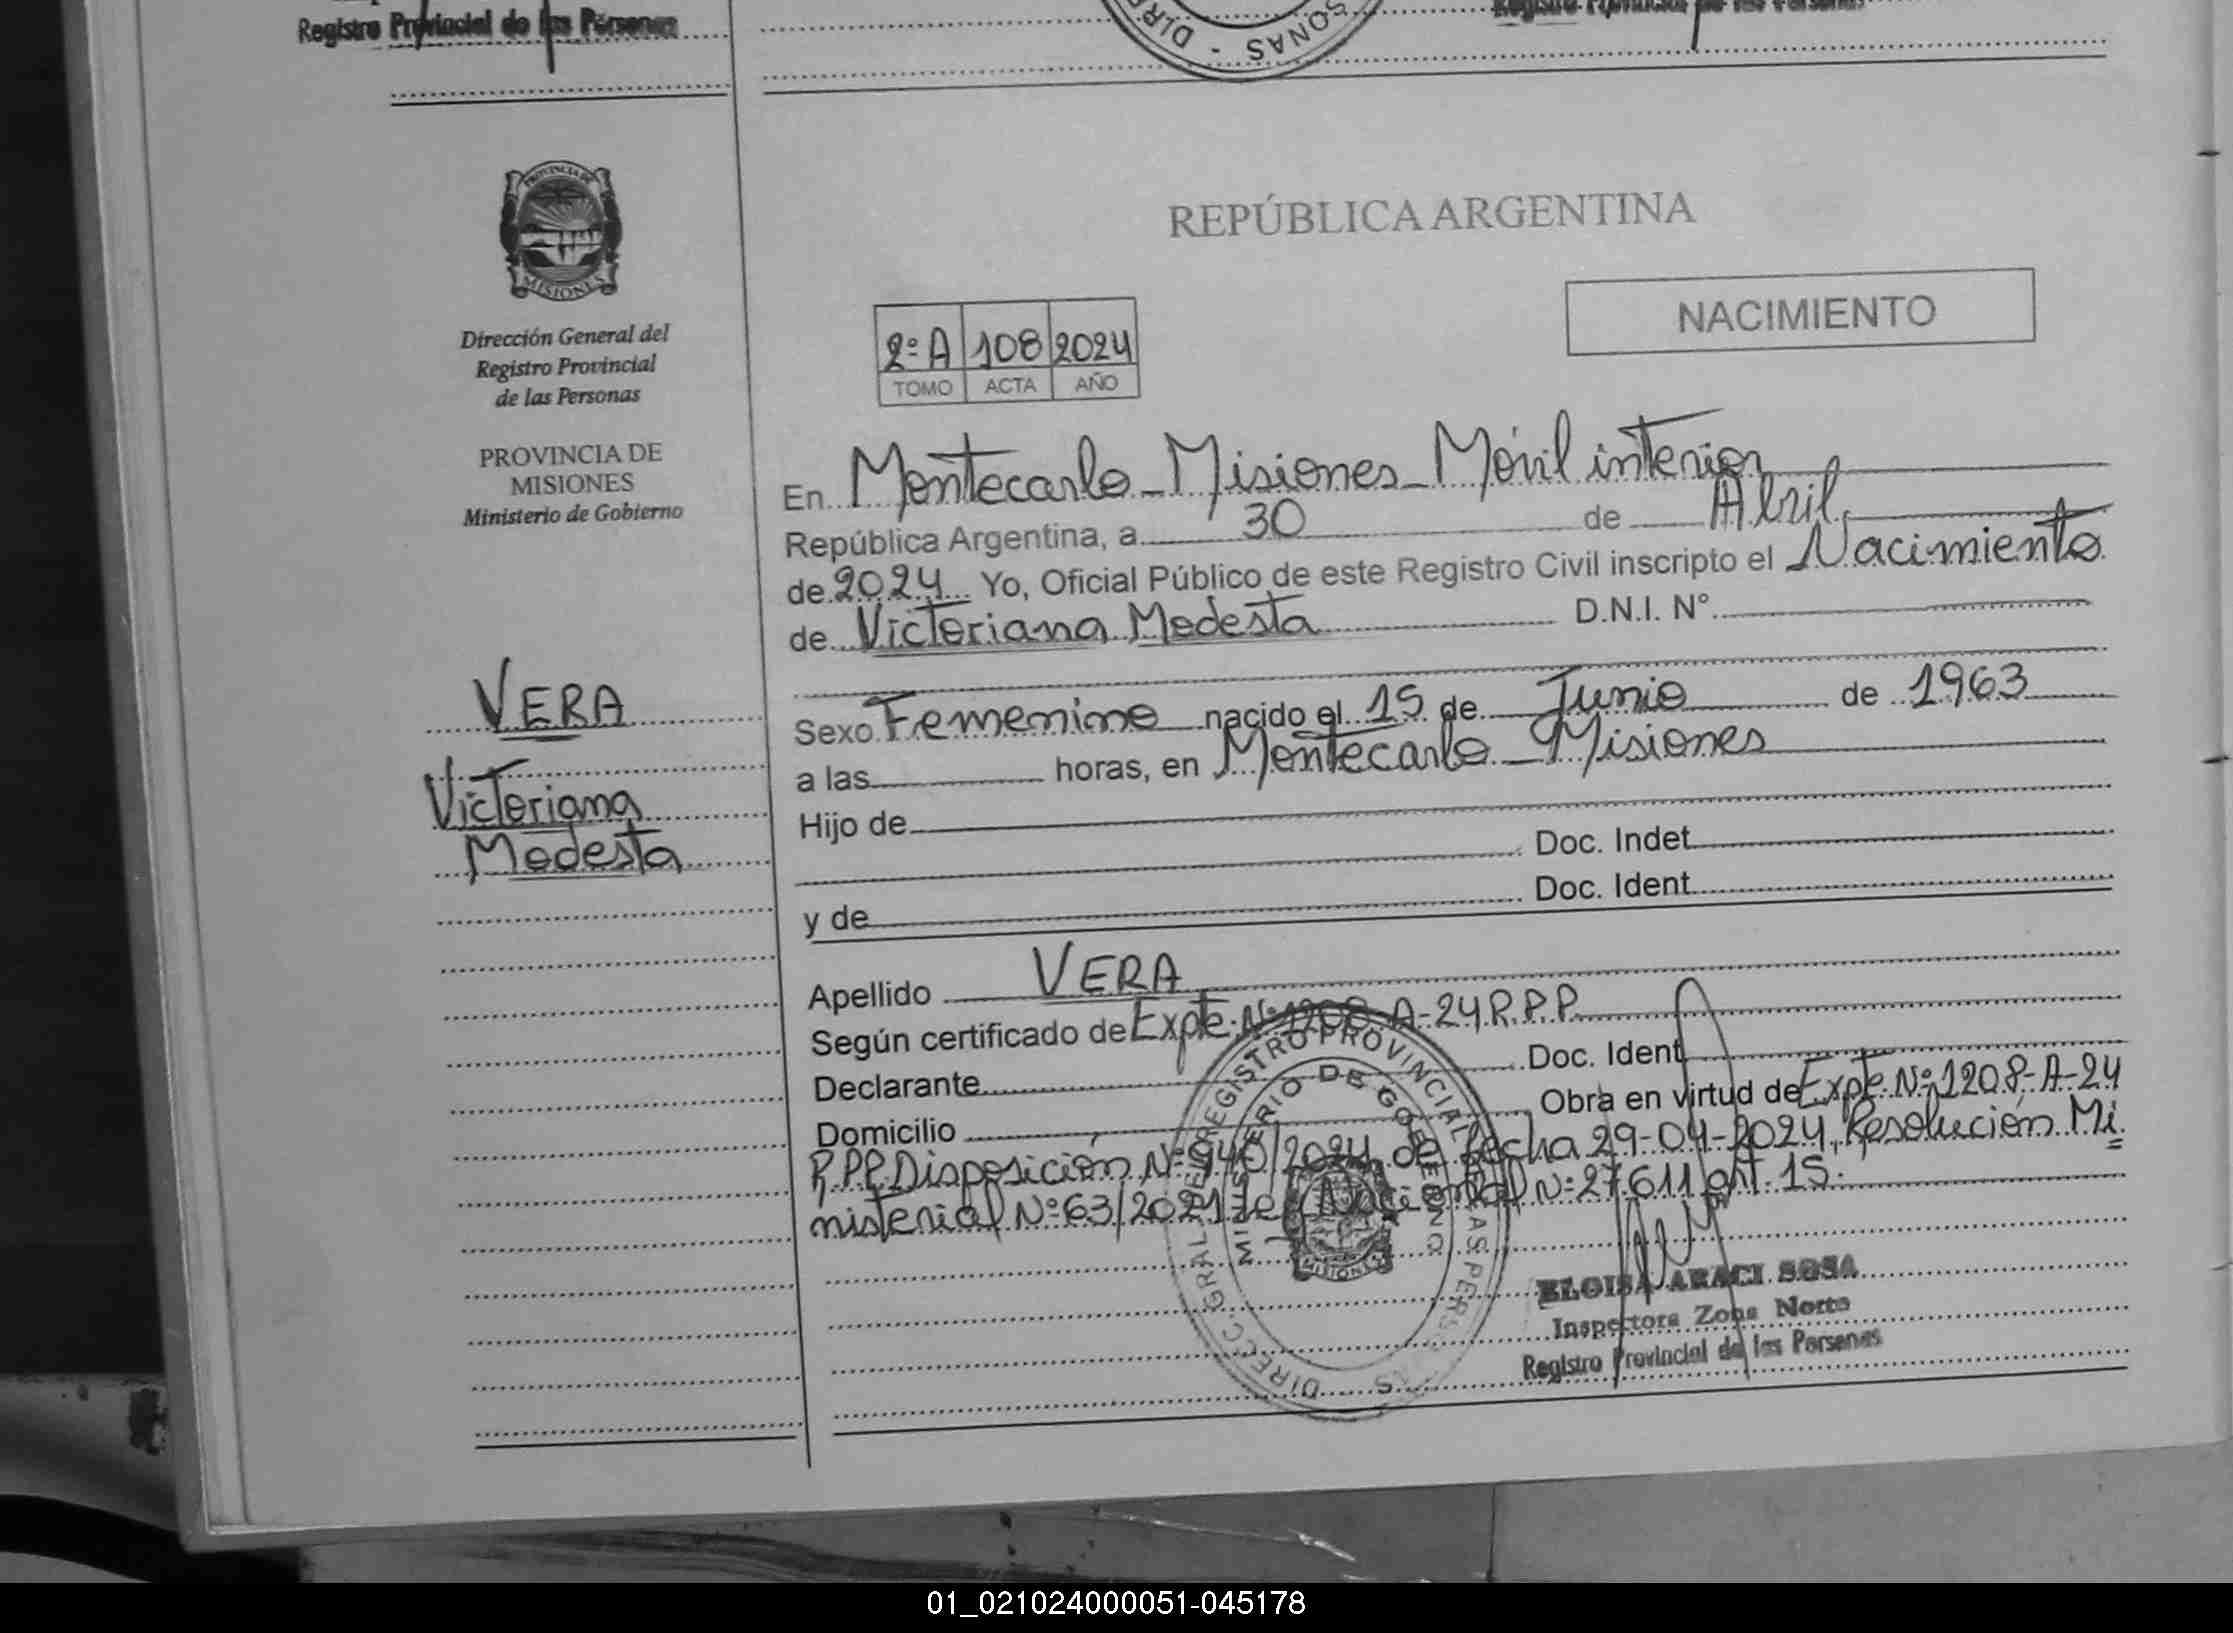 Registro Provincial de las Personas
Registro Provincial de las Personas
SONAS - DIRE
PROVINCIA DE
MISIONES
Dirección General del
Registro Provincial
de las Personas
PROVINCIA DE
MISIONES
Ministerio de Gobierno
VERA
Victoriana
Modesta
REPÚBLICA ARGENTINA
NACIMIENTO
2º A 108 2024
TOMO ACTA AÑO
En Montecarlo - Misiones - Móvil interior
República Argentina, a 30 de Abril
de 2024 Yo, Oficial Público de este Registro Civil inscripto el Nacimiento
de Victoriana Modesta D.N.I. N°
Sexo Femenino nacido el 15 de Junio de 1963
a las horas, en Montecarlo - Misiones
Hijo de
Doc. Indet
y de Doc. Ident
Apellido VERA
Según certificado de Expte. Nº 1208-A-24 R.P.P.
Declarante Doc. Ident
Domicilio Obra en virtud de Expte. Nº 1208-A-24
R.P.P. Disposición Nº 940/2024 de fecha 29-04-2024, Resolución Mi
nisterial Nº 63/2021 Ley Nacional Nº 27.611 art. 15.
DIRECC. GRAL. DEL REGISTRO PROVINCIAL DE LAS PERSONAS
MINISTERIO DE GOBIERNO
MISIONES
ELOISA ARACI SOSA
Inspectora Zona Norte
Registro Provincial de las Personas
01_021024000051-045178